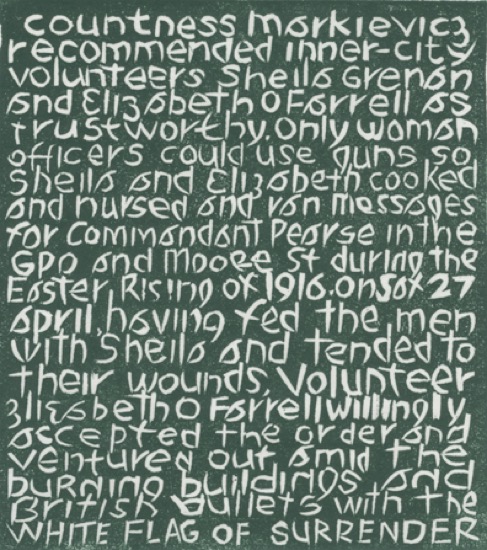 countness markievicz
recommended inner-city
volunteers Sheila Grenan
and Elizabeth O Farrell as
trustworthy. Only woman
officers could use guns so
Sheila and Elizabeth cooked
and nursed and ran messages
for Commandant Pearse in the
GPO and Moore St during the
Easter Rising of 1916. on Sat 27
april, having fed the men
with Sheila and tended to
their wounds, Volunteer
Elizabeth O Farrell willingly
accepted the order and
ventured out amid the
burning buildings and
British bullets with the
WHITE FLAG OF SURRENDER